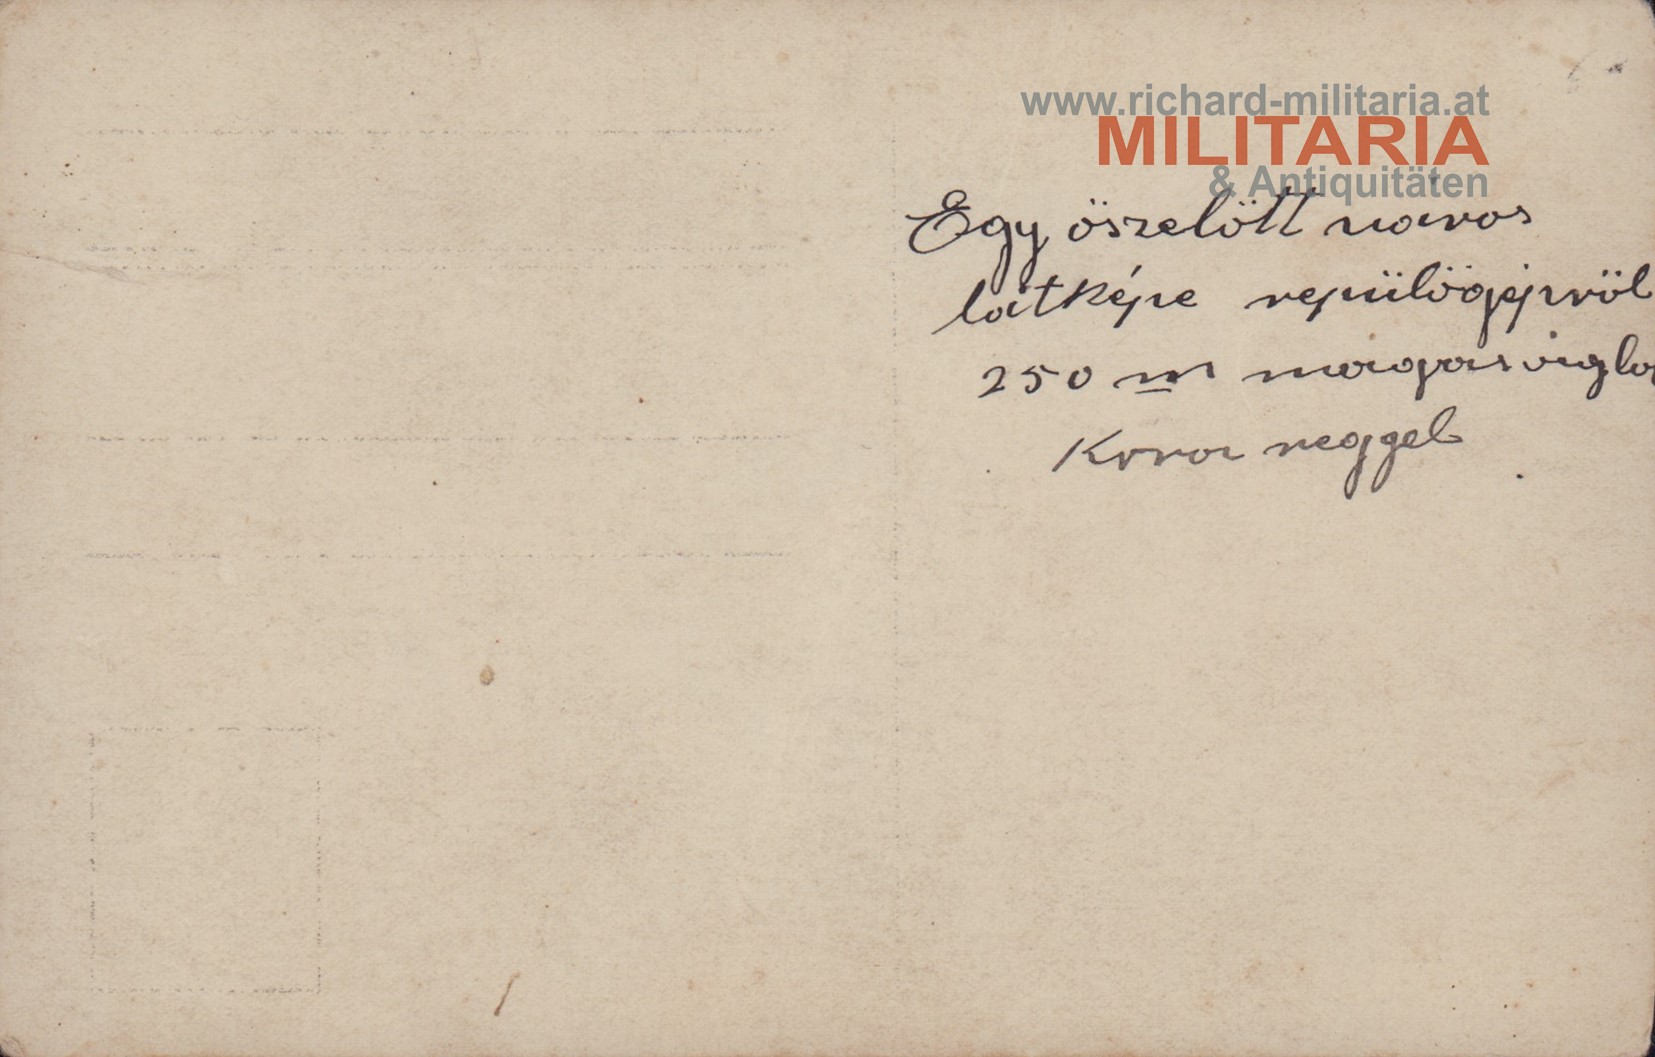 www.richard-militaria.at
MILITARIA
& Antiquitäten
Egy öszelött város
látképe repülögépröl
250 m magasságból
Kora reggel